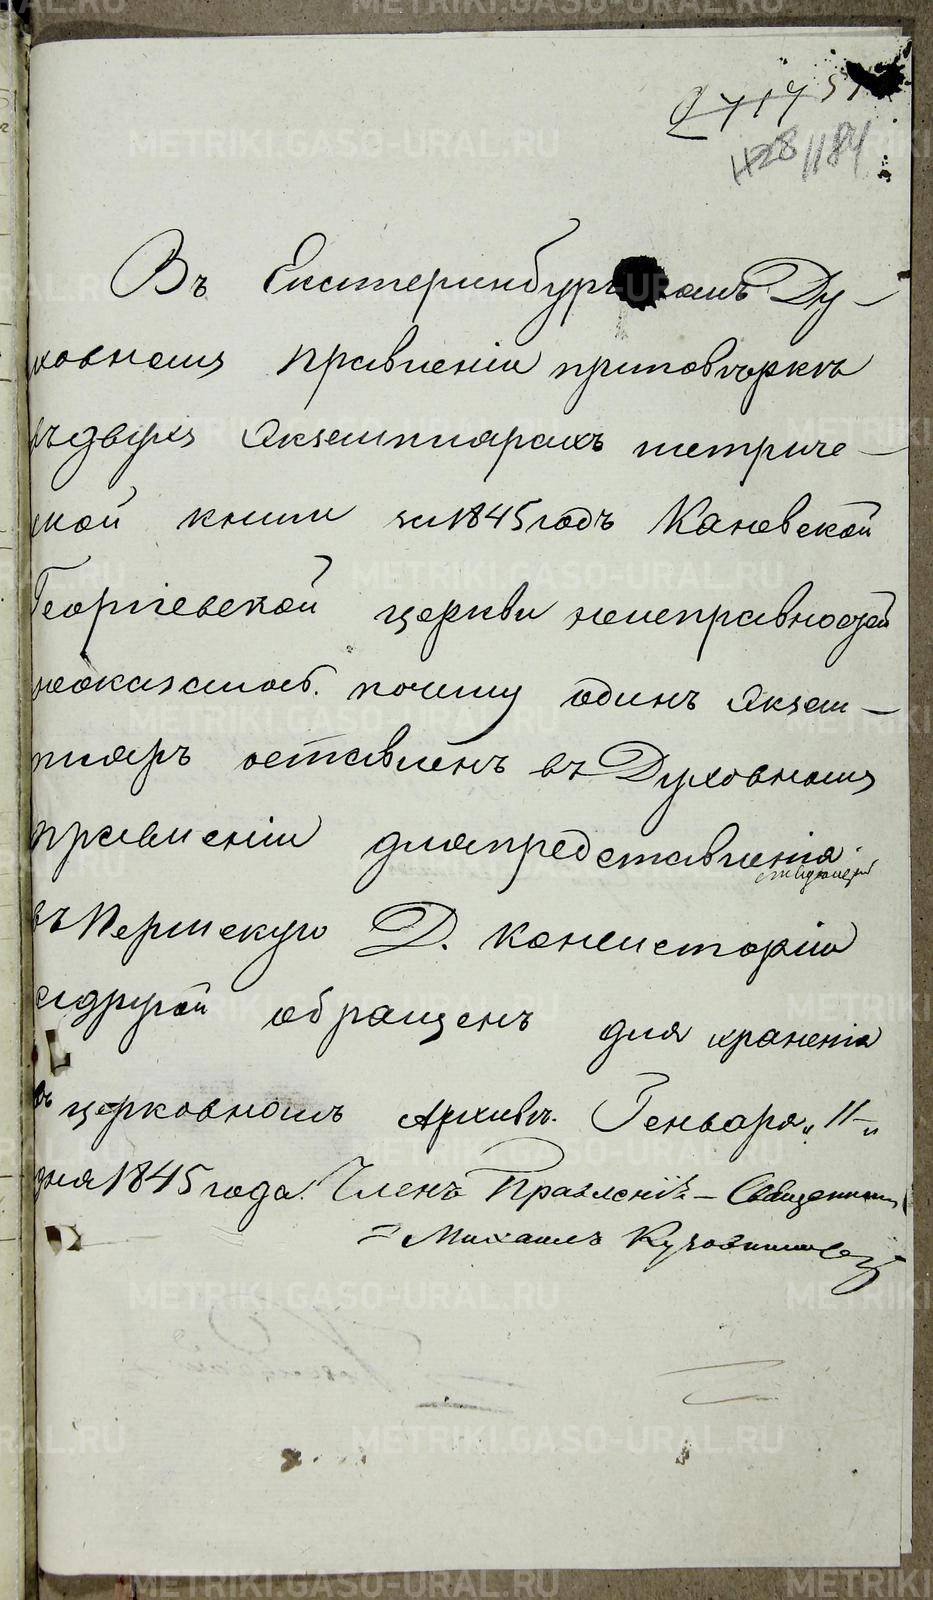 1184
Въ Екатеринбург комъ Ду-
ховномъ правленіи приповѣркѣ
въдвухъ Экземплярахъ метриче-
ской книги за 1845 годъ Каневской
Георгіевской церкви неисправностей
неоказалось. почему одинъ Экзем-
пляръ оставленъ въ Духовномъ
правленіи дляпредставленія
въ Пермскую Д. Консисторію
адругой обращенъ для храненія
въ церковномъ Архивѣ. Генваря „11-„
дня 1845 года. Членъ Правленія - Священникъ
= Михаилъ
METRIKI.GASO-URAL.RU